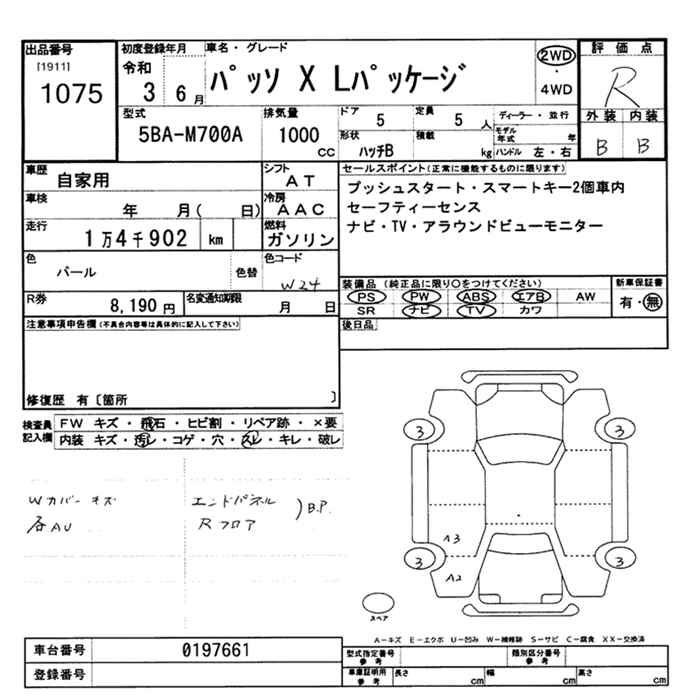 出品番号
[1911]
1075
初度登録年月
令和
3 6月
車名・グレード
パッソ X Lパッケージ
2WD
・
4WD
評価点
R
外装 内装
B B
型式
5BA-M700A
排気量
1000
CC
ドア
5
定員
5 人
形状
ハッチB
積載
kg
ディーラー・並行
モデル年式 年
ハンドル 左・右
車歴
自家用
シフト
AT
車検
年 月( 日)
冷房
AAC
走行
1万4千902 km
燃料
ガソリン
色
パール
色替
色コード
W24
R券
8,190 円
名変通知期限
月 日
セールスポイント(正常に機能するものに限ります)
プッシュスタート・スマートキー2個車内
セーフティーセンス
ナビ・TV・アラウンドビューモニター
装備品 (純正品に限り○をつけてください)
PS PW ABS エアB AW
SR ナビ TV カワ
新車保証書
有・無
後日品
注意事項申告欄(不具合内容等は具体的に記入して下さい)
修復歴 有〔箇所 〕
検査員
記入欄
FW キズ・飛石・ヒビ割・リペア跡・×要
内装 キズ・汚レ・コゲ・穴・スレ・キレ・破レ
Wカバーキズ
各AU
エンドパネル
Rフロア
)B.P.
3 3
A3
3 3
A2
スペア
A-キズ E-エクボ U-凹み W-補修跡 S-サビ C-腐食 XX-交換済
車台番号 0197661
登録番号
型式指定番号
参考
類別区分番号
参考
車庫証明用
参考
長さ cm
幅 cm
高さ cm